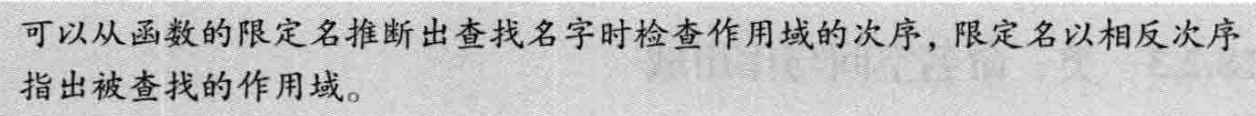 可以从函数的限定名推断出查找名字时检查作用域的次序，限定名以相反次序
指出被查找的作用域。